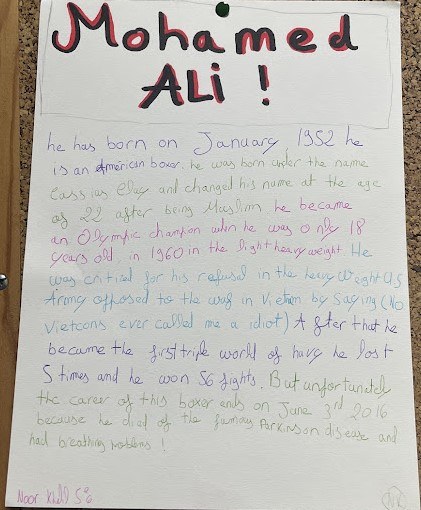 Mohamed
ALi !
he has born on January 1952 he
is an American boxer. he was born under the name
Cassius Clay and changed his name at the age
of 22 after being Muslim he became
an Olympic champion when he was only 18
years old in 1960 in the light heavy weight He
was critized for his refused in the heavy weight U.S
Army opposed to the war in Vietnam by saying (No
Vietcons ever called me a idiot) After that he
became the first triple world of havy he lost
5 times and he won 56 fights. But unfortunately
the career of this boxer ends on June 3rd 2016
because he died of the famous Parkinson disease and
had breathing problems !
Noor 5°6